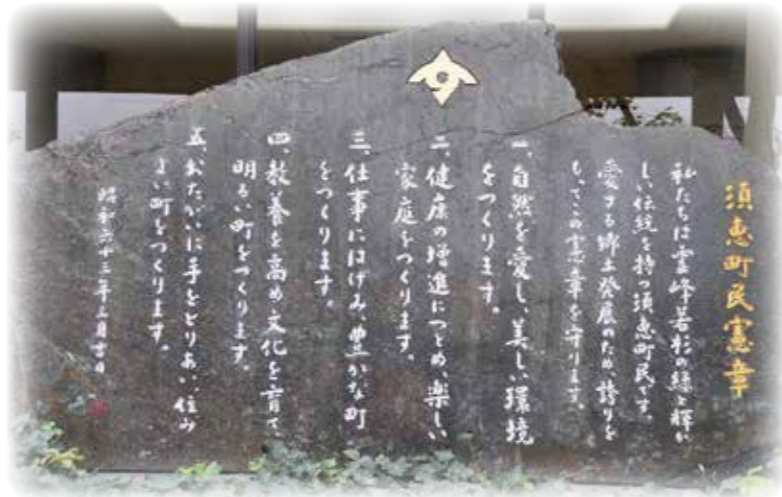 須恵町民憲章
私たちは霊峰若杉の緑と輝か
しい伝統を持つ須恵町民です。
愛する郷土発展のため、誇りを
もってこの憲章を守ります。
一、自然を愛し、美しい環境
をつくります。
二、健康の増進につとめ、楽しい
家庭をつくります。
三、仕事にはげみ、豊かな町
をつくります。
四、教養を高め文化を育て、
明るい町をつくります。
五、おたがいに手をとりあい、住み
よい町をつくります。
昭和六十三年三月吉日